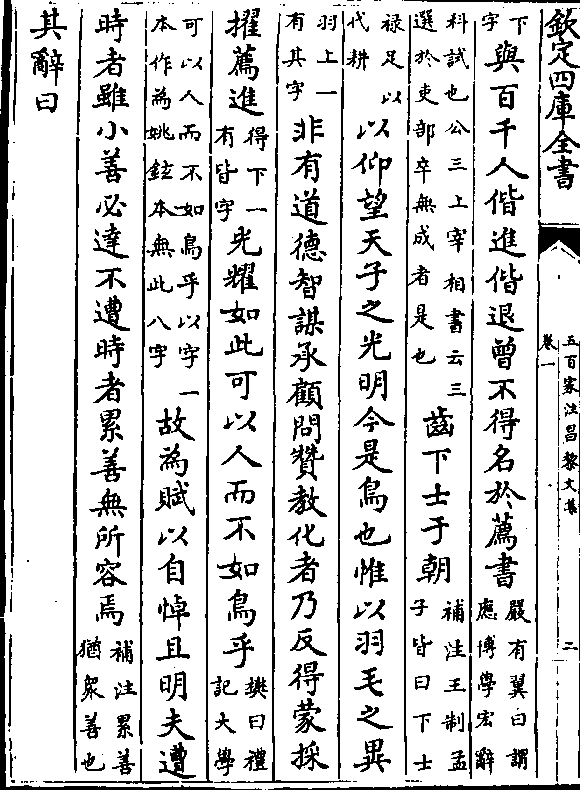 欽定四庫全書
五百家注昌黎文集
卷一
二
下字與百千人偕進偕退曾不得名於薦書嚴有翼曰謂應博學宏辭
科試也公三上宰相書云三選於吏部卒無成者是也齒下士于朝補注王制孟子皆曰下士
祿足以代耕以仰望天子之光明今是鳥也惟以羽毛之異
羽上一有其字非有道德智謀承顧問贊教化者乃反得蒙採
擢薦進得下一有皆字光耀如此可以人而不如鳥乎樊曰禮記大學
可以人而不如鳥乎以字一本作為姚鉉本無此八字故為賦以自悼且明夫遭
時者雖小善必達不遭時者累善無所容焉補注累善猶衆善也
其辭曰